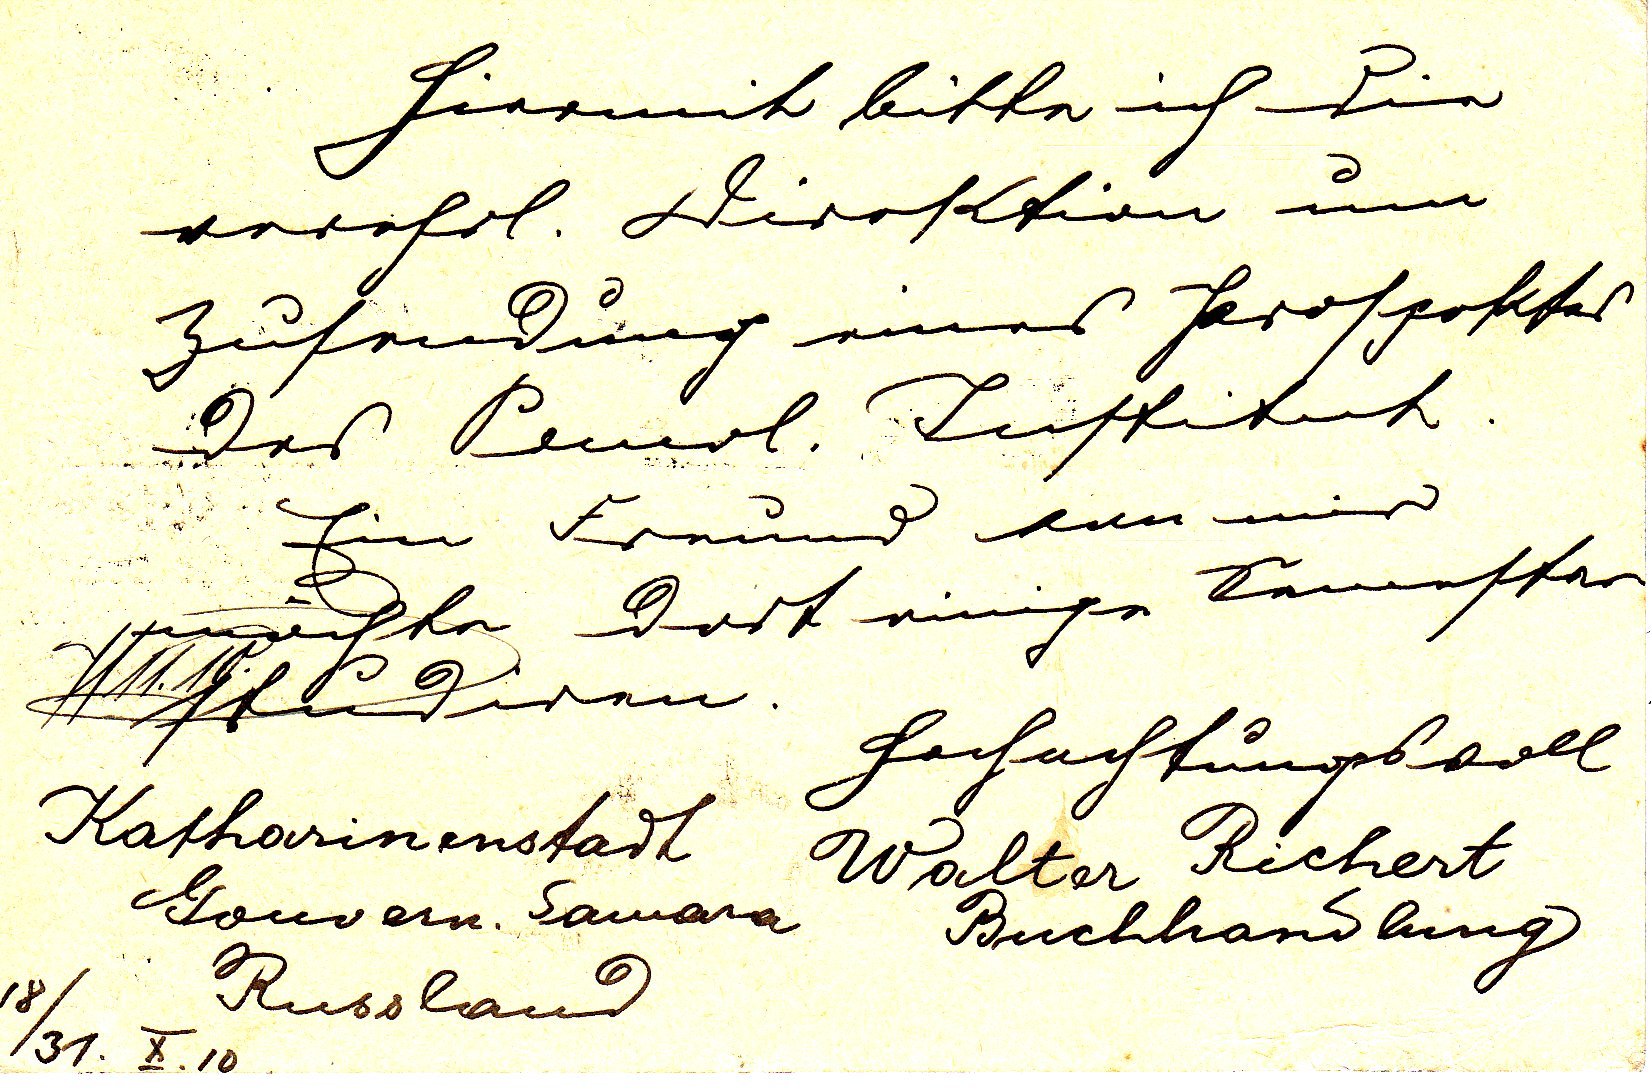 Hiermit bitte ich die
verehrl. Direktion um
Zusendung eines Prospektes
des Instituts.
Ein Freund von mir
möchte dort einige Semester
studieren.
11.10.
Hochachtungsvoll
Katharinenstadt
Walter Richert
Gouvern. Samara
Buchhandlung
Russland
18/
31. X. 10